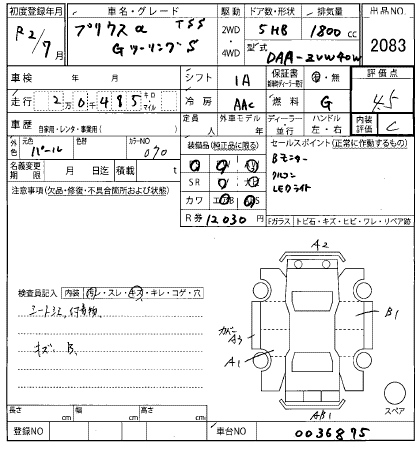 初度登録年月 車名・グレード 駆動 ドア数・形状 排気量 出品NO
R2/7月 プリウスα TSS 2WD 5HB 1800cc 2083
Gツーリングs 4WD 型式 DAA-ZVW40W
車検 年 月 シフト IA 保証書 有・無 評価点
走行 2万0千485 キロ マイル 冷房 AAC 燃料 G 4.5
車歴 自家用・レンタ・事業用( ) 定員 人 外車モデル 年 ディーラー 並行 ハンドル 左・右 内装評価 C
外色 元色 パール 色替 カラーNO 070 装備品(純正品に限る) セールスポイント(正常に作動するもの)
名義変更期限 月 日迄 積載 t Bモニター
注意事項(欠品・修復・不具合箇所および状態) SR クルコン
カワ LEDライト
R券 12030 円 Fガラス トビ石・キズ・ヒビ・ワレ・リペア跡
A2
検査員記入 内装 汚レ・スレ・キズ・キレ・コゲ・穴
シートシミ、付着物
キズ B、
カバー A3
B1
A1
スペア
AB1
長さ cm 幅 cm 高さ cm
登録NO 車台NO 0036875